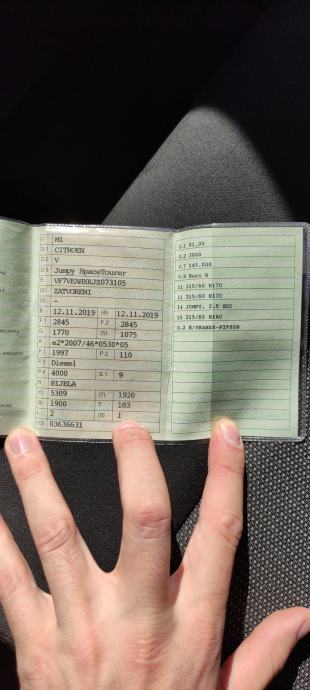 J M1
D.1 CITROEN
D.2 V
D.3 Jumpy SpaceTourer
E VF7VEAHXKJZ073105
(2) ZATVORENI
(3) -
B 12.11.2019 (4) 12.11.2019
F.1 2845 F.2 2845
G 1770 (5) 1075
K e2*2007/46*0530*05
P.1 1997 P.2 110
P.3 Diesel
P.4 4000 S.1 9
R BIJELA
(6) 5309 (7) 1920
(8) 1900 T 183
L 2 (9) 1
(10) 03636631
U.1 81,00
U.2 3000
V.7 145.000
V.9 Euro 6
11 215/60 R17C
11 215/60 R17C
14 JUMPY, 2.0 HDI
15 215/65 R16C